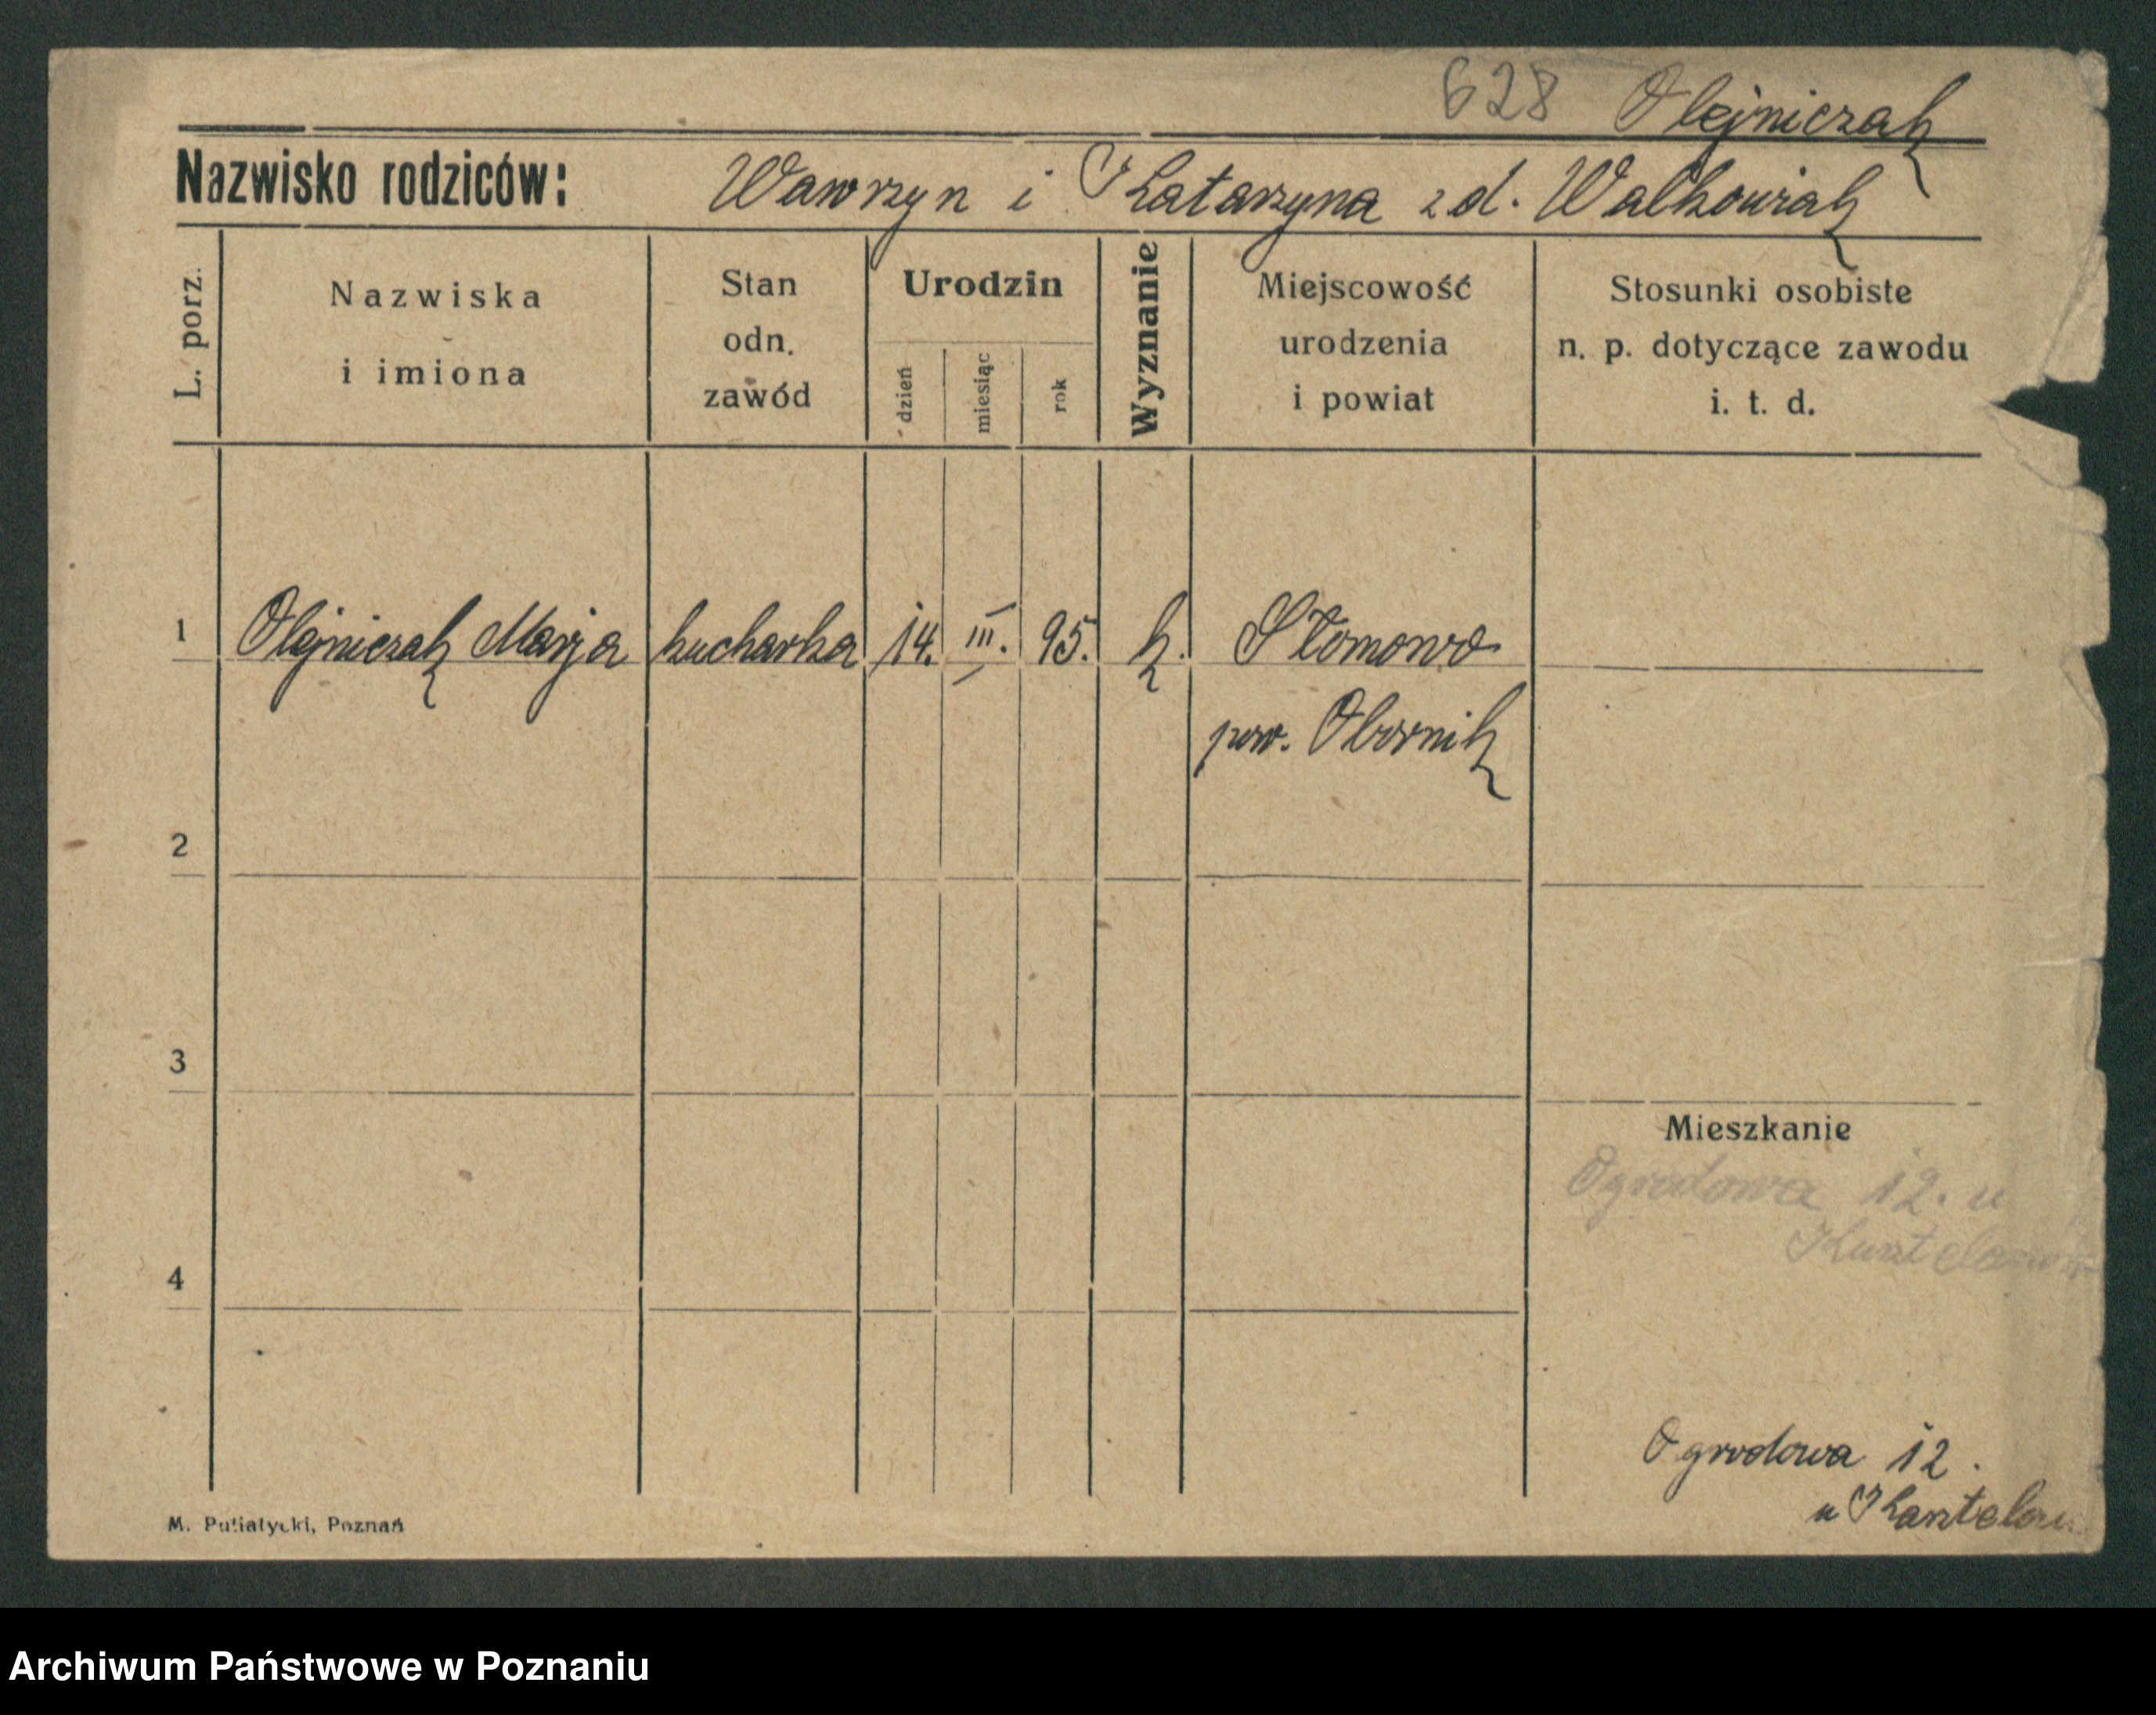 628 Olejniczak
Nazwisko rodziców: Wawrzyn i Katarzyna z d. Walkowiak
L. porz.
Nazwiska
i imiona
Stan
odn.
zawód
Urodzin
dzień
miesiąc
rok
Wyznanie
Miejscowość
urodzenia
i powiat
Stosunki osobiste
n. p. dotyczące zawodu
i. t. d.
1 Olejniczak Marja kucharka 14. III. 95. k. Słomowo
pow. Obornik
2
3
Mieszkanie
Ogrodowa 12. u
4
Ogrodowa 12.
u
M. Putiatycki, Poznań
Archiwum Państwowe w Poznaniu